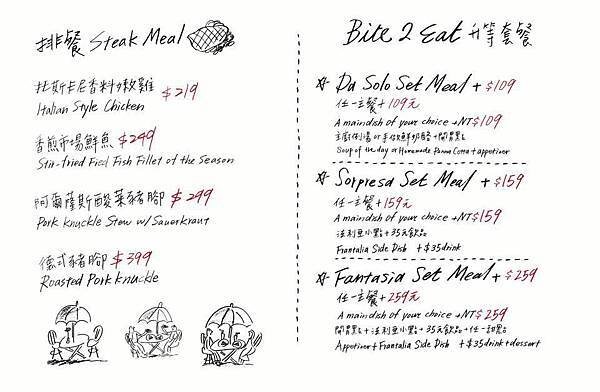 排餐 Steak Meal
托斯卡尼香料嫩雞 $219
Italian Style Chicken
香煎市場鮮魚 $249
Stir-fried Fied Fish Fillet of the Season
阿爾薩斯酸菜豬腳 $299
Pork Knuckle Stew w/Sauerkraut
德式豬腳 $399
Roasted Pork Knuckle
Bite 2 Eat 升等套餐
☆ Da Solo Set Meal + $109
任一主餐+109元
A maindish of your choice +NT$109
主廚例湯 or 手作鮮奶酪+開胃點
Soup of the day or Homemade Panna Cotta + appetiner
☆ Sorpresa Set Meal + $159
任一主餐+159元
A maindish of your choice +NT$159
法利亞小點+35元飲品
Frantalia Side Dish +$35drink
☆ Fantasia Set Meal + $259
任一主餐+259元
A maindish of your choice +NT$259
開胃點+法利亞小點+35元飲品+任一甜點
Appetiner+Frantalia Side Dish +$35drink+dessert